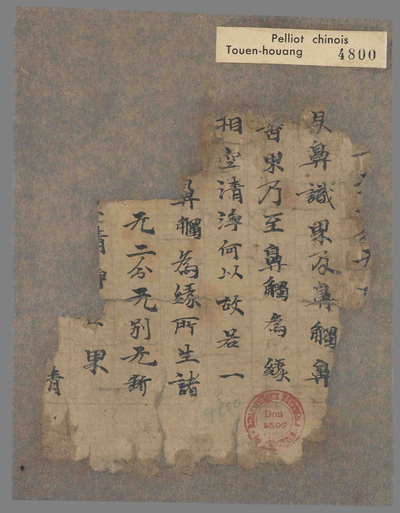 Pelliot chinois
Touen-houang 4800
界鼻識界及鼻觸鼻
香界乃至鼻觸為緣
相空清淨何以故若一
鼻觸為緣所生諸
无二分无別无斷
清 界
清
4800
Don